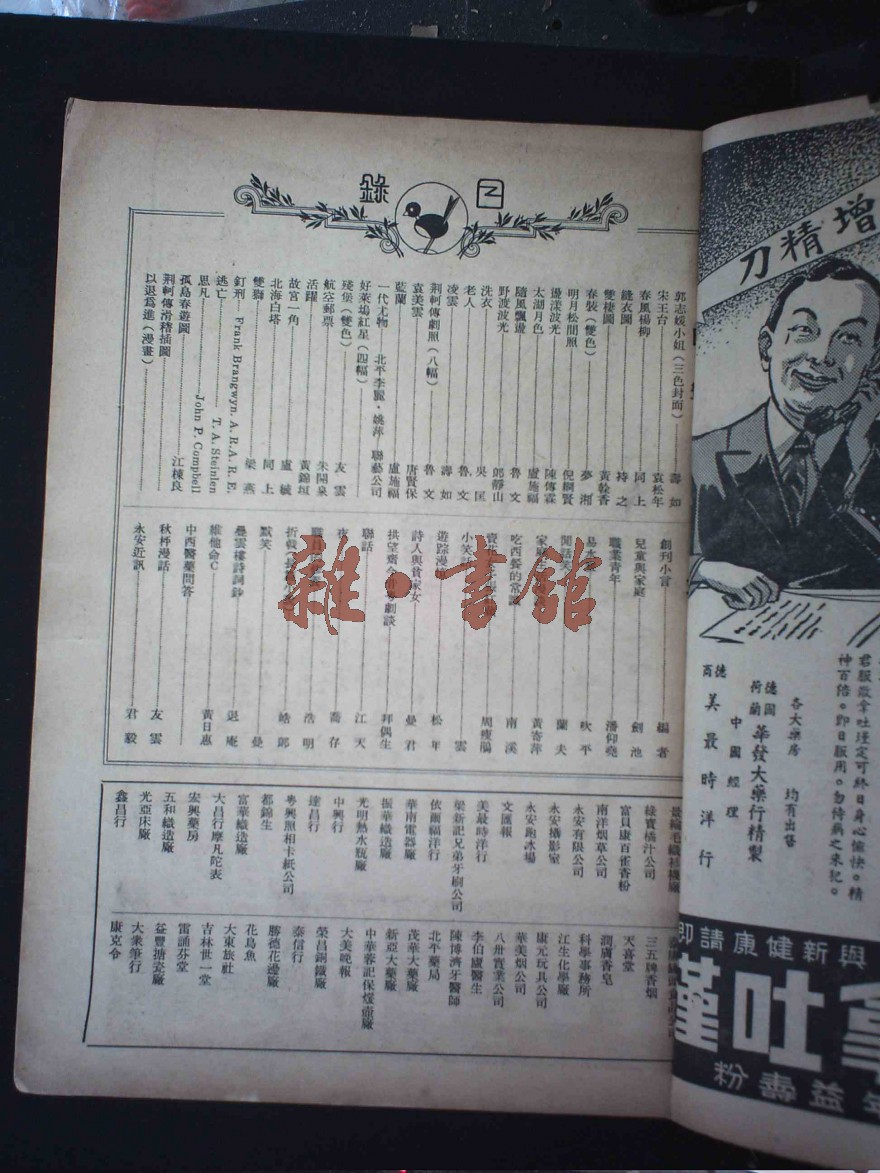 目錄
郭志媛小姐（三色封面）……壽如
宋王台……袁松年
春風楊柳……同上
縫衣圖……持之
雙棲圖……黃榦香
春裝（雙色）……夢湘
明月松間照……倪綱賢
盪漾波光……陳傳霖
太湖月色……盧施福
隨風飄盪……魯文
野渡波光……郎靜山
洗衣……吳匡
老人……魯文
凌雲……壽如
荆軻傳劇照（八幅）……魯文
袁美雲……唐賢保
藍蘭……盧施福
一代尤物……北平李麗·姚萍 聯藝公司
好萊塢紅星（四幅）
殘堡（雙色）……友雲
航空郵票……朱開泉
活躍……黃錦垣
故宮一角……盧毓
北海白塔……同上
雙獅……梁燕
釘刑……Frank Brangwyn. A. R. A. R. E.
逃亡……T. A. Steinlen
思凡……John P. Campbell
孤島春遊圖……江棟良
荆軻傳滑稽插圖
以退為進（漫畫）
創刊小言……編者
兒童與家庭……劍池
職業青年……潘仰堯
易水……吹平
閒話笑……蘭夫
家庭……黃寄萍
吃西餐的常識……南溪
壹……周瘦鵑
小笑……雲
遊踪漫……松年
詩人與賣……女……曼君
拱望齋今……劇談……拜偶生
聯話……江天
夜……喬存
職……浩明
折……皓郎
默笑……曼
曇雲樓詩詞鈔……退庵
維他命C……黃日惠
中西醫藥問答
秋枰漫話……友雲
永安近訊……君毅
景綸毛織衫襪廠
綠寶橘汁公司
富貝康百雀香粉
南洋烟草公司
永安有限公司
永安攝影室
永安跑冰場
文匯報
美最時洋行
梁新記兄弟牙刷公司
依爾福洋行
華南電器廠
振華織造廠
光明熱水瓶廠
中興行
達昌行
粵興照相卡紙公司
都錦生
富華織造廠
大昌行摩凡陀表
宏興藥房
五和織造廠
光亞床廠
鑫昌行
三五牌香烟
天喜堂
潤膚香皂
科學事務所
江生化學廠
康元玩具公司
華美烟公司
八卅實業公司
李伯盧醫生
陳博濟牙醫師
北平藥局
茂華大藥廠
新亞大藥廠
中華蓉記保煖壺廠
大美晚報
榮昌銅鐵廠
泰信行
勝德花邊廠
花島魚
大東旅社
吉林世一堂
雷誦芬堂
益豐搪瓷廠
大衆筆行
康克令
雜·書館
增精刀
君服散拿吐瑾定可終日身心愉快。精
神百倍。即日服用。勿待病之來犯。
各大藥房 均有出售
德國
荷蘭 華發大藥行精製
中國經理
德商 美最時洋行
與新健康請即
拿吐瑾
年益壽粉